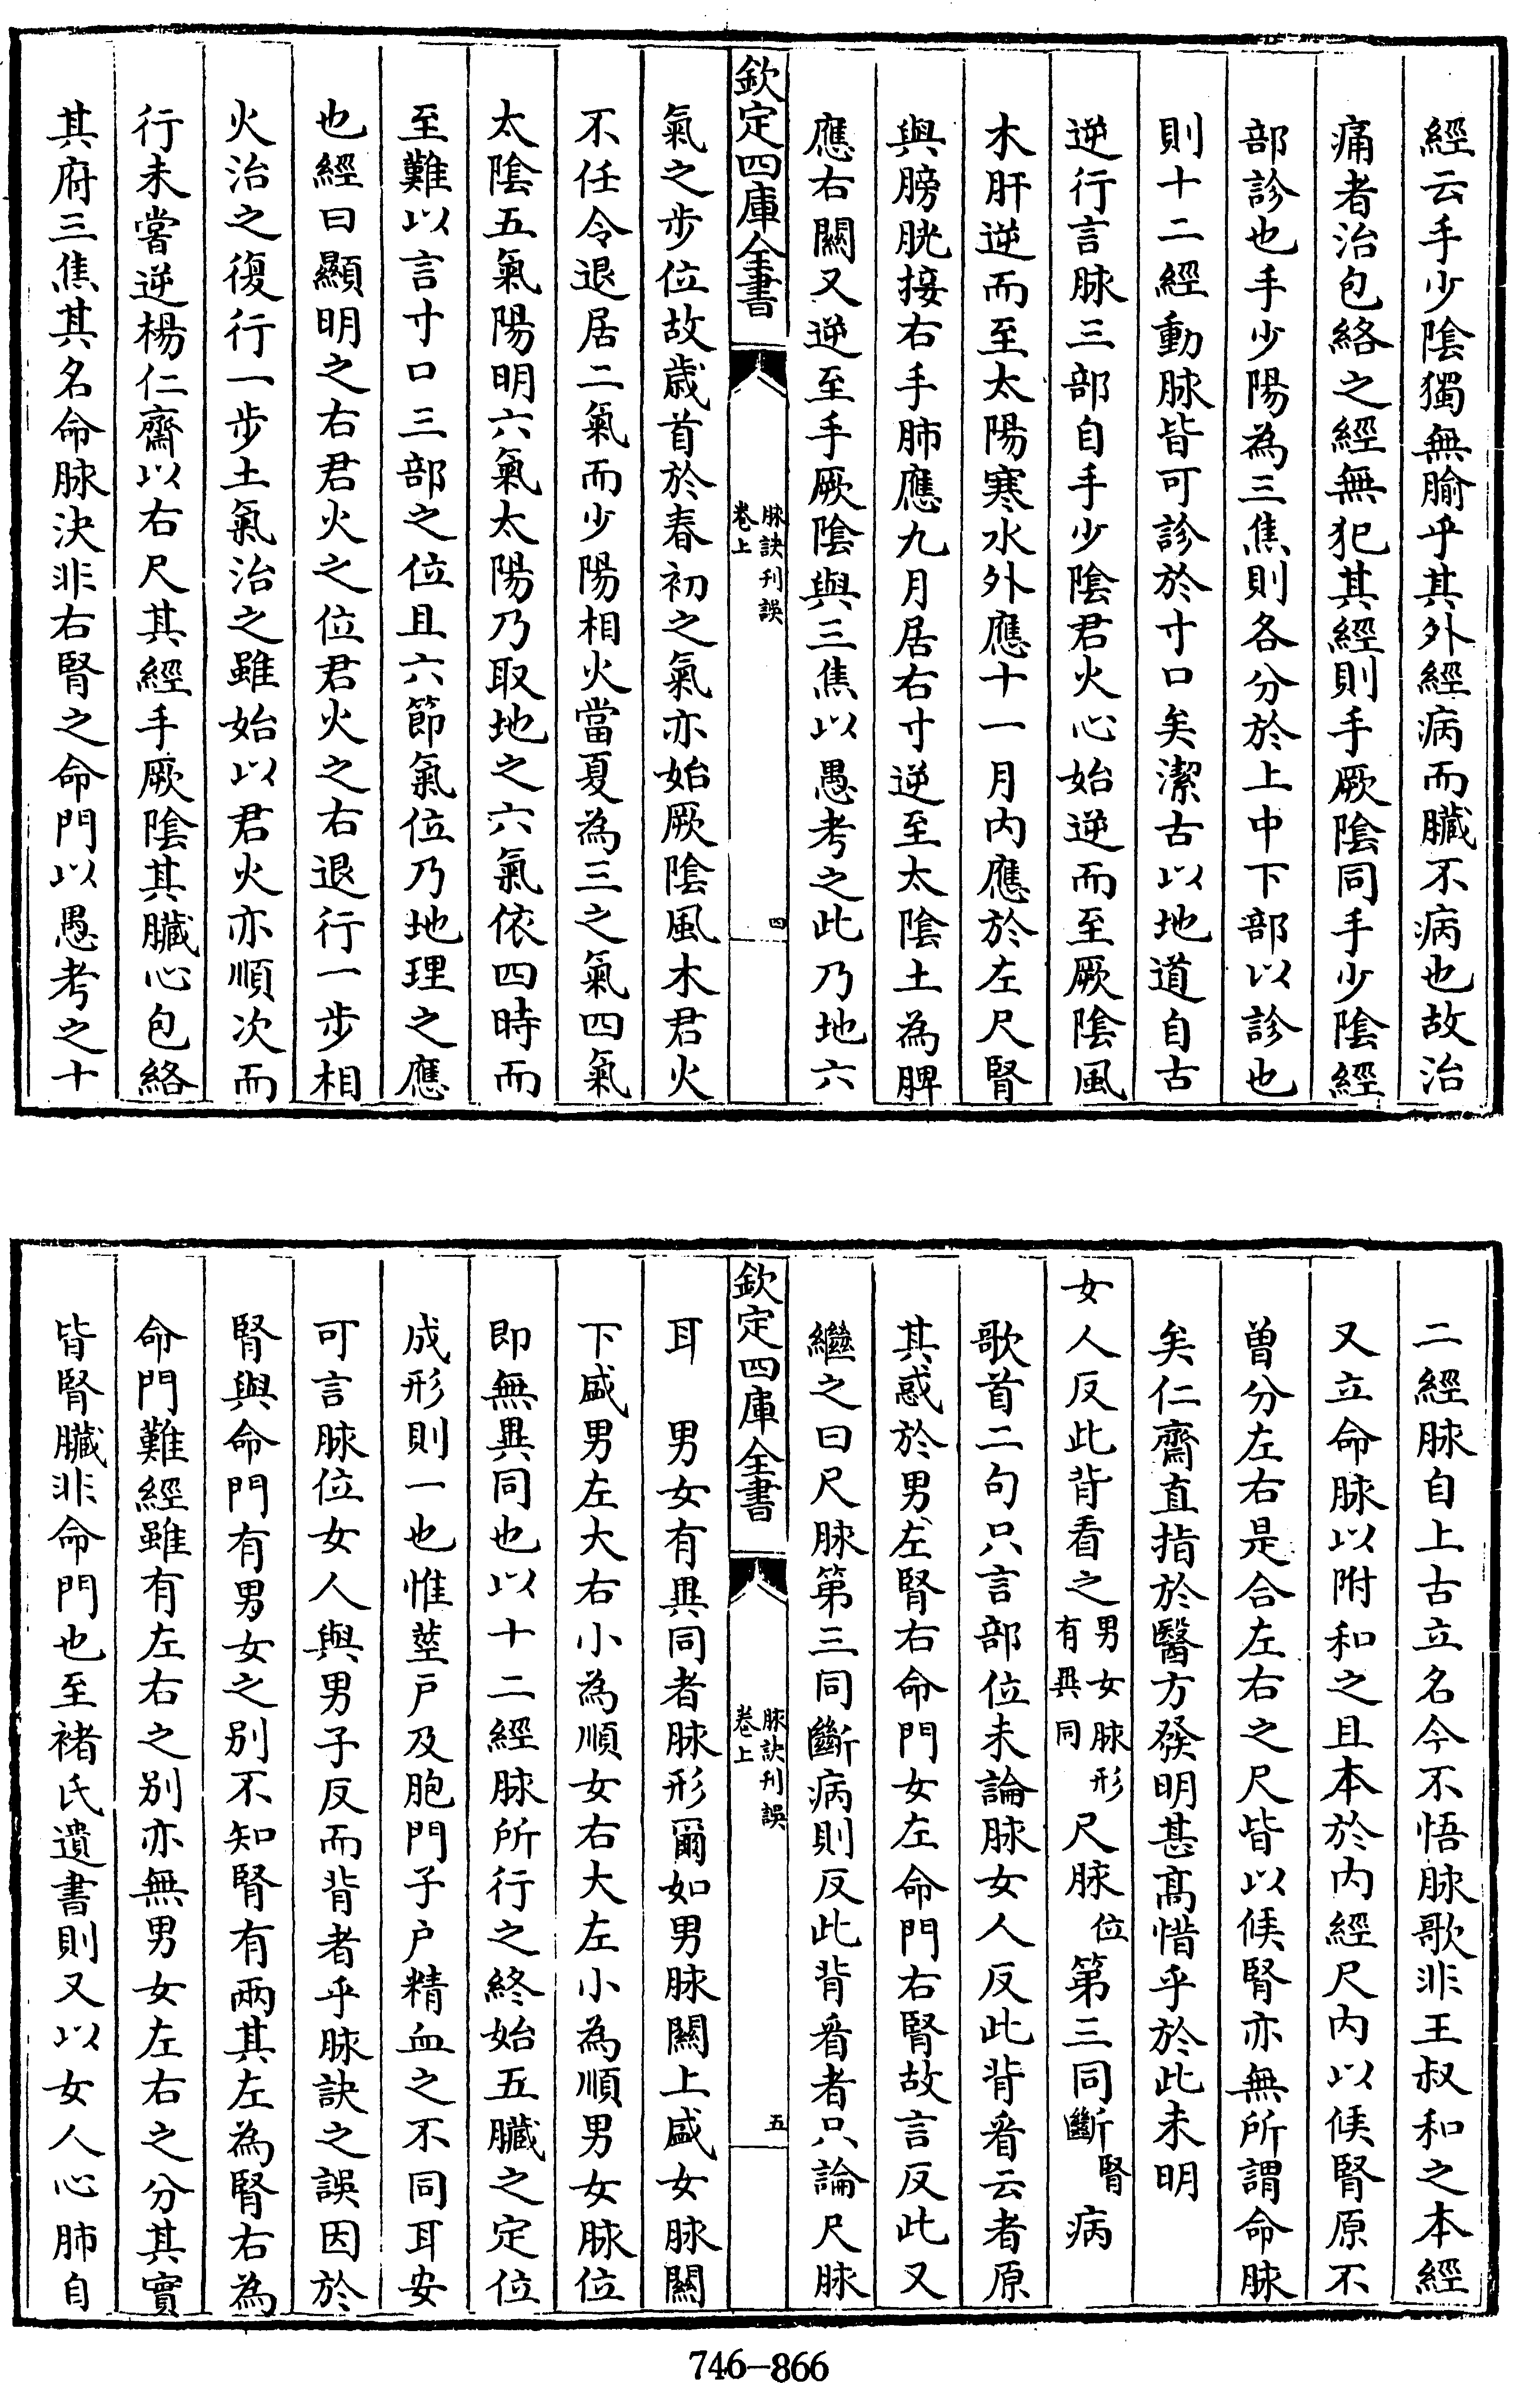 經云手少隂獨無腧乎其外經病而臓不病也故治
痛者治包絡之經無犯其經則手厥隂同手少隂經
部診也手少陽為三焦則各分於上中下部以診也
則十二經動脉皆可診於寸口矣潔古以地道自古
逆行言脉三部自手少隂君火心始逆而至厥隂風
木肝逆而至太陽寒水外應十一月内應於左尺腎
與膀胱接右手肺應九月居右寸逆至太隂土為脾
應右關又逆至手厥隂與三焦以愚考之此乃地六
欽定四庫全書
脉訣刋誤
卷上
四
氣之步位故歲首於春初之氣亦始厥隂風木君火
不任令退居二氣而少陽相火當夏為三之氣四氣
太隂五氣陽明六氣太陽乃取地之六氣依四時而
至難以言寸口三部之位且六節氣位乃地理之應
也經曰顯明之右君火之位君火之右退行一步相
火治之復行一步土氣治之雖始以君火亦順次而
行未嘗逆楊仁齋以右尺其經手厥隂其臓心包絡
其府三焦其名命脉決非右腎之命門以愚考之十
二經脉自上古立名今不悟脉歌非王叔和之本經
又立命脉以附和之且本於内經尺内以候腎原不
曽分左右是合左右之尺皆以候腎亦無所謂命脉
矣仁齋直指於醫方發明甚髙惜乎於此未明
女人反此背看之男女脉形有異同尺脉位第三同斷腎病
歌首二句只言部位未論脉女人反此背㸔云者原
其惑於男左腎右命門女左命門右腎故言反此又
繼之曰尺脉第三同斷病則反此背㸔者只論尺脉
欽定四庫全書
脉訣刋誤
卷上
五
耳　男女有異同者脉形爾如男脉關上盛女脉關
下盛男左大右小為順女右大左小為順男女脉位
即無異同也以十二經脉所行之終始五臓之定位
成形則一也惟莖戸及胞門子户精血之不同耳安
可言脉位女人與男子反而背者乎脉訣之誤因於
腎與命門有男女之别不知腎有兩其左為腎右為
命門難經雖有左右之别亦無男女左右之分其實
皆腎臓非命門也至褚氏遺書則又以女人心肺自
746-866